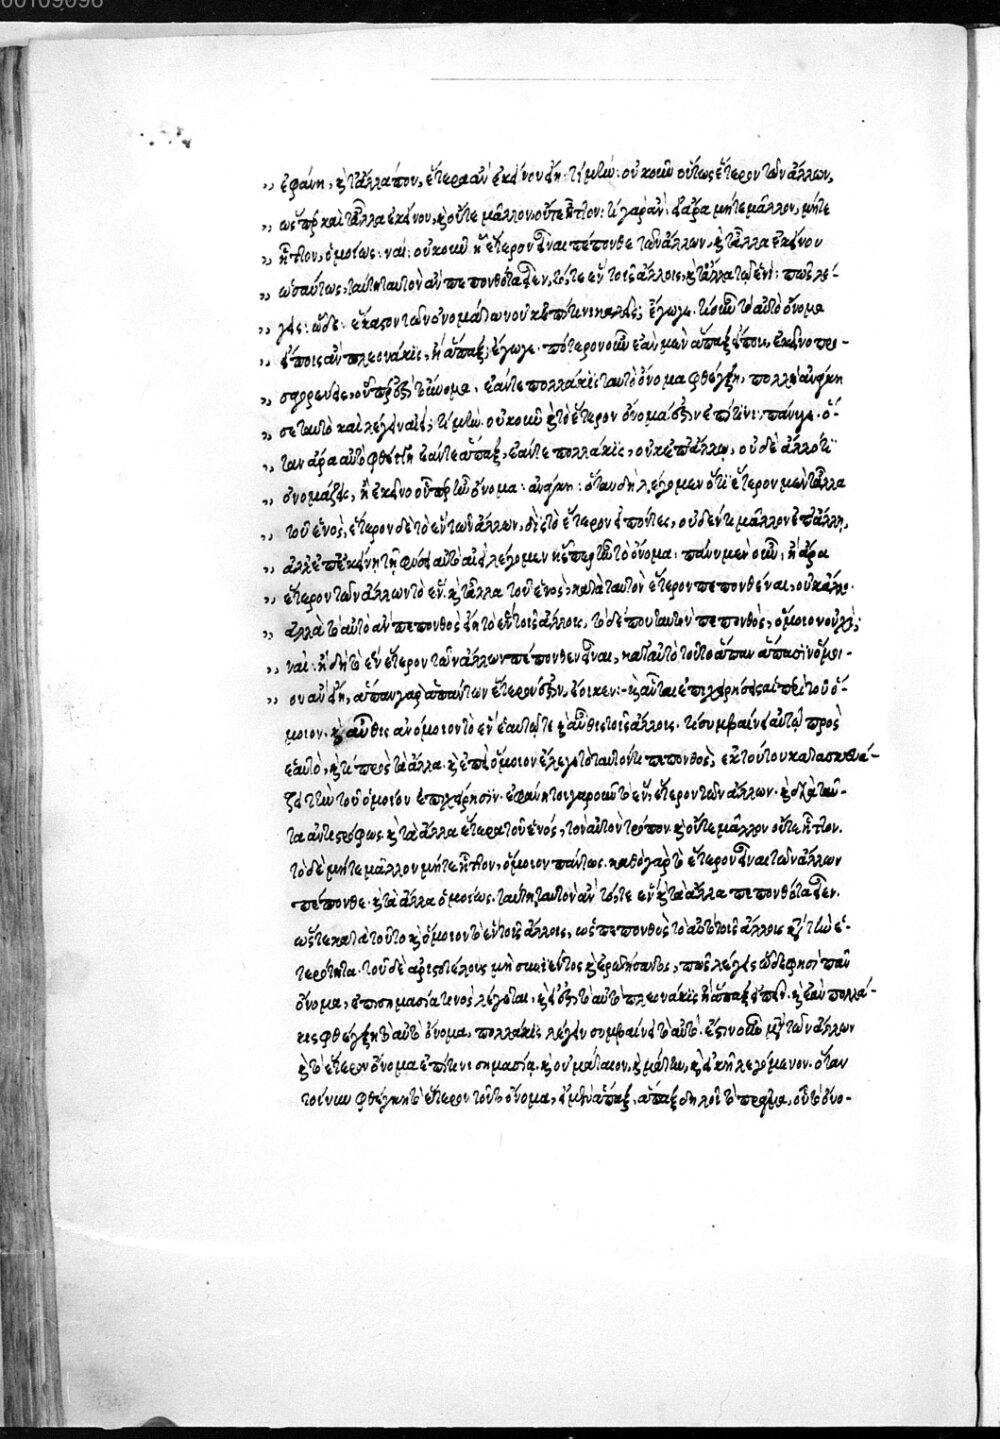 00109098
,, ἐφάνη, καὶ τἆλλά που, ἕτερα ἂν ἐκείνου εἴη· τί μήν: οὐκοῦν οὕτως ἕτερον τῶν ἄλλων,
,, ὥσπερ καὶ τἆλλα ἐκείνου, καὶ οὔτε μᾶλλον, οὔτε ἧττον: τί γὰρ ἄν: εἰ ἄρα μήτε μᾶλλον, μήτε
,, ἧττον, ὁμοίως: ναί: οὐκοῦν ᾗ ἕτερον εἶναι πέπονθε τῶν ἄλλων, καὶ τἆλλα ἐκείνου
,, ὡσαύτως, ταύτῃ ταυτὸν ἂν πεπονθότα εἶεν, τό, τε ἓν τοῖς ἄλλοις, καὶ τἆλλα τῷ ἑνί: πῶς λέ-
,, γεις: ὧδε· ἕκαστον τῶν ὀνομάτων οὐκ ἐπί τινι καλεῖς; ἔγωγε· τί οὖν τὸ αὐτὸ ὄνομα
,, εἴποις ἂν πλεονάκις, ἢ ἅπαξ; ἔγωγε· πότερον οὖν ἐὰν μὲν ἅπαξ εἴπῃς, ἐκεῖνο προ-
,, σαγορεύεις, οὗπέρ ἐστι τοὔνομα, ἐὰν τε πολλάκις ταυτὸ ὄνομα φθέγξῃ, πολλὴ ἀνάγκη
,, σε ταυτὸ καὶ λέγειν ἀεί; τί μήν· οὐκοῦν καὶ τὸ ἕτερον ὄνομά ἐστιν ἐπί τινι; πάνυ γε· ὅ-
,, ταν ἄρα αὐτὸ φθέγγῃ ἐάν τε ἅπαξ, ἐάν τε πολλάκις, οὐκ ἐπ' ἄλλῳ, οὐδὲ ἄλλό τι
,, ὀνομάζεις, ἢ ἐκεῖνο οὗπερ ἦν ὄνομα: ἀνάγκη: ὅταν δὴ λέγομεν ὅτι ἕτερον μὲν τἆλλα
,, τοῦ ἑνὸς, ἕτερον δὲ τὸ ἓν τῶν ἄλλων, δὶς τὸ ἕτερον εἰπόντες, οὐδέν τι μᾶλλον ἐπ' ἄλλῃ,
,, ἀλλ' ἐπ' ἐκείνῃ τῇ φύσει αὐτὸ ἀεὶ λέγομεν ἧσπερ ἦν τὸ ὄνομα: πάνυ μὲν οὖν; ᾗ ἄρα
,, ἕτερον τῶν ἄλλων τὸ ἓν, καὶ τἆλλα τοῦ ἑνὸς, κατὰ ταυτὸν ἕτερον πεπονθέναι, οὐκ ἄλλο·
,, ἀλλὰ τὸ αὐτὸ ἂν πεπονθὸς εἴη τὸ ἓν τοῖς ἄλλοις, τὸ δέ που ταυτὸν πεπονθὸς, ὅμοιον οὐχί;
,, ναί: ᾗ δὴ τὸ ἓν ἕτερον τῶν ἄλλων πέπονθεν εἶναι, κατ' αὐτὸ τοῦτο ἅπαν ἅπασιν ὅμοι-
,, ον ἂν εἴη, ἅπαν γὰρ ἁπάντων ἕτερόν ἐστιν, ἔοικεν:- καὶ αὗται ἐπιχειρήσεις αἱ περὶ τοῦ ὁ-
μοιον· καὶ αὖθις ἀνόμοιον τὸ ἓν ἑαυτῷ τε καὶ αὖθις τοῖς ἄλλοις· τί συμβαίνει αὐτῷ πρὸς
ἑαυτό, καὶ τί πρὸς τὰ ἄλλα. καὶ ἐπεὶ ὅμοιον ἐλέγετο ταυτόν τι πεπονθὸς, ἐκ τούτου κατασκευά-
ζει τὴν τοῦ ὁμοίου ἐπιχείρησιν· ἐφάνη τοιγαροῦν τὸ ἓν, ἕτερον τῶν ἄλλων· καὶ διὰ ταῦ-
τα ἀντιστρόφως καὶ τὰ ἄλλα ἕτερα τοῦ ἑνός, τὸν αὐτὸν τρόπον καὶ οὔτε μᾶλλον οὔτε ἧττον.
τὸ δὲ μήτε μᾶλλον μήτε ἧττον, ὅμοιον πάντως. καθὸ γὰρ τὸ ἕτερον εἶναι τῶν ἄλλων
πέπονθε· καὶ τὰ ἄλλα ὁμοίως. ταύτῃ ταυτὸν ἂν τό, τε ἓν καὶ τὰ ἄλλα πεπονθότα εἶεν.
ὥστε κατὰ τοῦτο καὶ ὅμοιον τὸ ἓν τοῖς ἄλλοις, ὡς πεπονθὸς τὸ αὐτὸ τοῖς ἄλλοις κατὰ τὴν ἑ-
τερότητα. τοῦ δὲ ἀριστοτέλους μὴ συνιέντος καὶ ἐρωτήσαντος, πῶς λέγεις ὧδέ φησι πᾶν
ὄνομα, ἐπὶ σημασίᾳ τινὸς λέγεται, καὶ ἔστι τὸ αὐτὸ πλεονάκις ἢ ἅπαξ εἰπεῖν. καὶ ἐὰν πολλά-
κις φθέγξῃ τὸ αὐτὸ ὄνομα, πολλάκις λέγειν συμβαίνει τὸ αὐτό. ἔστιν οὖν μετὰ τῶν ἄλλων
καὶ τὸ ἕτερον ὄνομα ἐπί τινι σημασίᾳ. καὶ οὐ μάταιον, καὶ μάτην, καὶ εἰκῆ λεγόμενον. ὅταν
τοίνυν φθέγγῃ τὸ ἕτερον τοῦτο ὄνομα, εἰ μὲν ἅπαξ, ἅπαξ δηλοῖ τὸ πρᾶγμα, οὗ τὸ ὄνο-